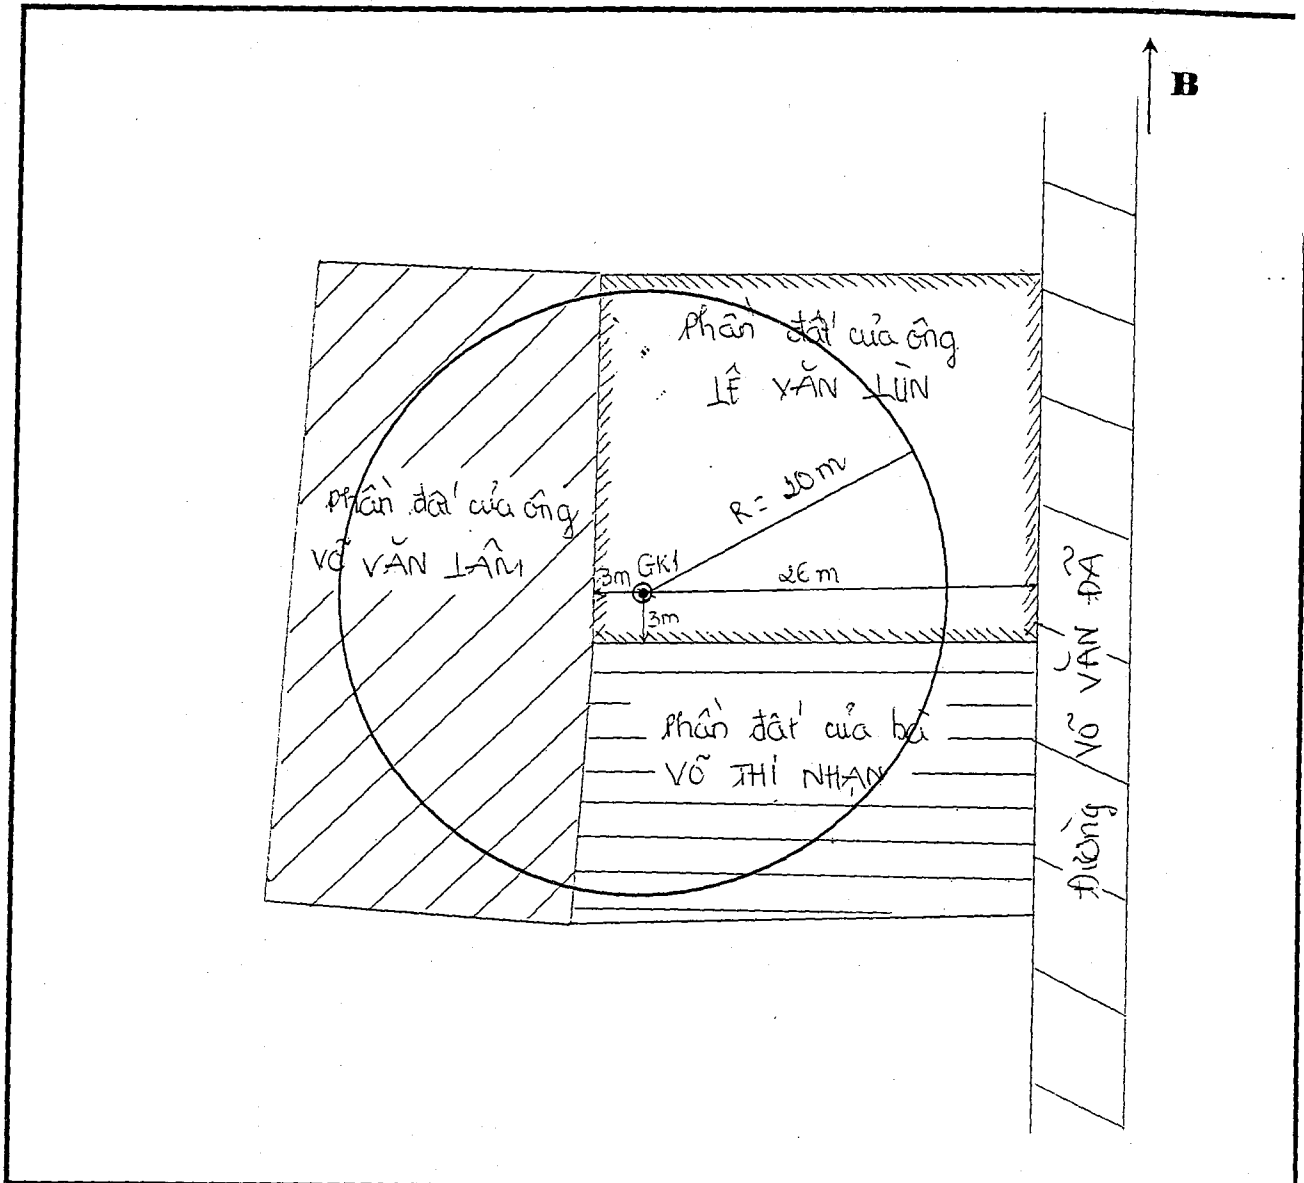 B
Phần đất của ông
LÊ VĂN LÙN
R = 20m
Phần đất của ông
VÕ VĂN LÂM
3m
GK1
26 m
3m
Phần đất của bà
VÕ THỊ NHẠN
Đường VÕ VĂN